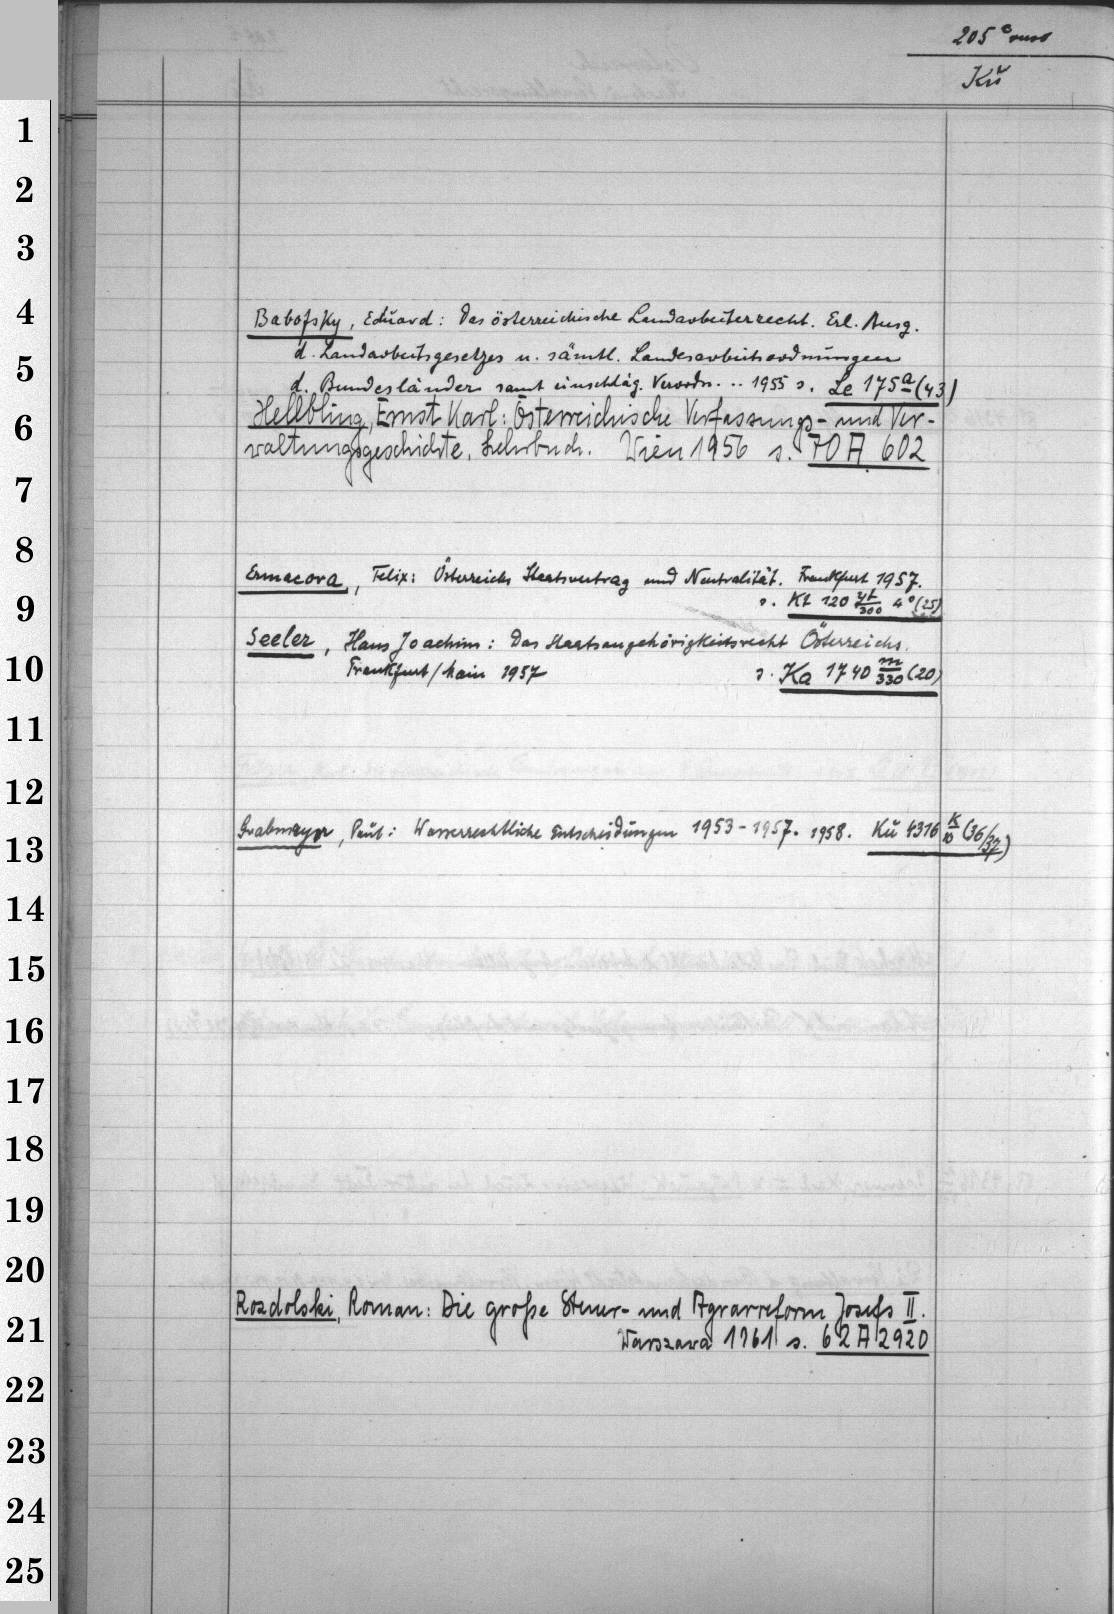 205 c verso
Kü
1
2
3
4
Babofsky, Eduard: Das österreichische Landarbeiterrecht. Erl. Ausg.
d. Landarbeitsgesetzes u. sämtl. Landesarbeitsordnungen
5
d. Bundesländer samt einschläg. Verordn. .. 1955 s. Le 175 a (43)
Hellbling, Ernst Karl: Österreichische Verfassungs- und Ver-
6
waltungsgeschichte, Lehrbuch. Wien 1956 s. 70 A 602
7
8
Ermacora, Felix: Österreichs Staatsvertrag und Neutralität. Frankfurt 1957.
9
s. Kt 120 yt/300 4° (25)
Seeler, Hans Joachim: Das Staatsangehörigkeitsrecht Österreichs.
10
Frankfurt/Main 1957 s. Ka 1740 m/330 (20)
11
12
Grabmayr, Paul: Wasserrechtliche Entscheidungen 1953-1957. 1958. Kü 4316 K/10 (36/37)
13
14
15
16
17
18
19
20
Rozdolski, Roman: Die große Steuer- und Agrarreform Josefs II.
21
Warszawa 1961 s. 62 A 2920
22
23
24
25